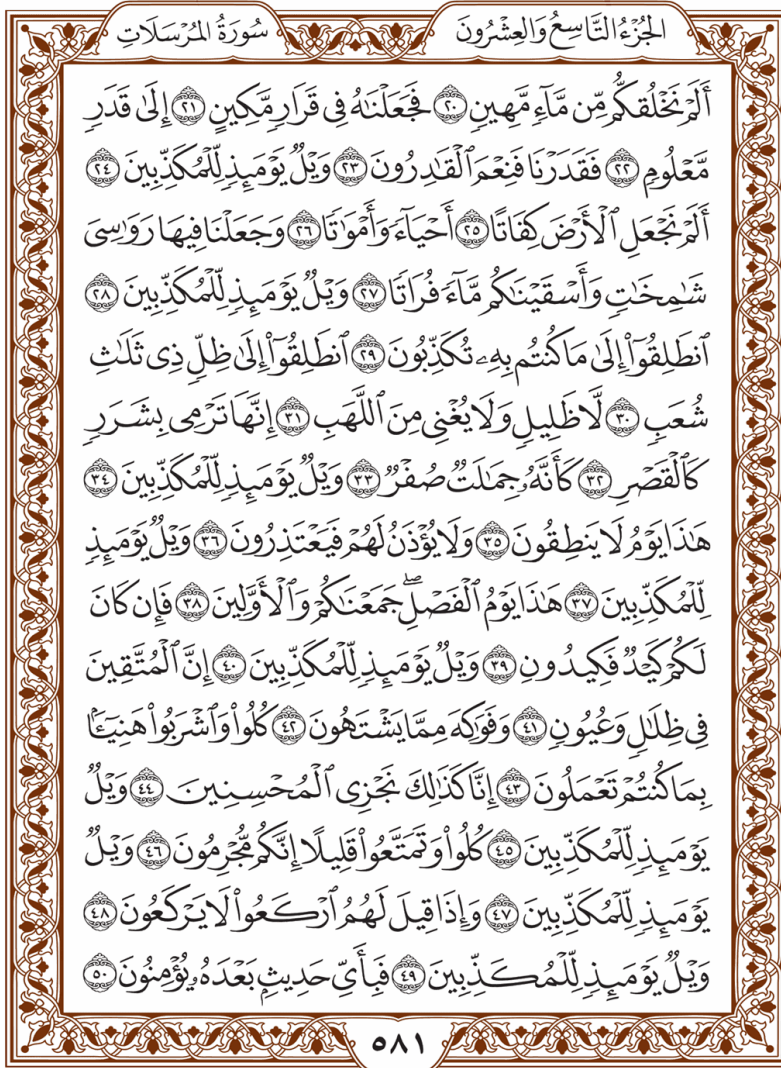 الجُزْءُ التَّاسِعُ وَالعِشْرُونَ
سُورَةُ المُرْسَلَات
أَلَمْ نَخْلُقكُّم مِّن مَّآءٍ مَّهِينٍ ٢٠ فَجَعَلْنَٰهُ فِى قَرَارٍ مَّكِينٍ ٢١ إِلَىٰ قَدَرٍ
مَّعْلُومٍ ٢٢ فَقَدَرْنَا فَنِعْمَ ٱلْقَٰدِرُونَ ٢٣ وَيْلٌ يَوْمَئِذٍ لِّلْمُكَذِّبِينَ ٢٤
أَلَمْ نَجْعَلِ ٱلْأَرْضَ كِفَاتًا ٢٥ أَحْيَآءً وَأَمْوَٰتًا ٢٦ وَجَعَلْنَا فِيهَا رَوَٰسِىَ
شَٰمِخَٰتٍ وَأَسْقَيْنَٰكُم مَّآءً فُرَاتًا ٢٧ وَيْلٌ يَوْمَئِذٍ لِّلْمُكَذِّبِينَ ٢٨
ٱنطَلِقُوٓا۟ إِلَىٰ مَا كُنتُم بِهِۦ تُكَذِّبُونَ ٢٩ ٱنطَلِقُوٓا۟ إِلَىٰ ظِلٍّ ذِى ثَلَٰثِ
شُعَبٍ ٣٠ لَّا ظَلِيلٍ وَلَا يُغْنِى مِنَ ٱللَّهَبِ ٣١ إِنَّهَا تَرْمِى بِشَرَرٍ
كَٱلْقَصْرِ ٣٢ كَأَنَّهُۥ جِمَٰلَتٌ صُفْرٌ ٣٣ وَيْلٌ يَوْمَئِذٍ لِّلْمُكَذِّبِينَ ٣٤
هَٰذَا يَوْمُ لَا يَنطِقُونَ ٣٥ وَلَا يُؤْذَنُ لَهُمْ فَيَعْتَذِرُونَ ٣٦ وَيْلٌ يَوْمَئِذٍ
لِّلْمُكَذِّبِينَ ٣٧ هَٰذَا يَوْمُ ٱلْفَصْلِ ۖ جَمَعْنَٰكُمْ وَٱلْأَوَّلِينَ ٣٨ فَإِن كَانَ
لَكُمْ كَيْدٌ فَكِيدُونِ ٣٩ وَيْلٌ يَوْمَئِذٍ لِّلْمُكَذِّبِينَ ٤٠ إِنَّ ٱلْمُتَّقِينَ
فِى ظِلَٰلٍ وَعُيُونٍ ٤١ وَفَوَٰكِهَ مِمَّا يَشْتَهُونَ ٤٢ كُلُوا۟ وَٱشْرَبُوا۟ هَنِيٓـًٔۢا
بِمَا كُنتُمْ تَعْمَلُونَ ٤٣ إِنَّا كَذَٰلِكَ نَجْزِى ٱلْمُحْسِنِينَ ٤٤ وَيْلٌ
يَوْمَئِذٍ لِّلْمُكَذِّبِينَ ٤٥ كُلُوا۟ وَتَمَتَّعُوا۟ قَلِيلًا إِنَّكُم مُّجْرِمُونَ ٤٦ وَيْلٌ
يَوْمَئِذٍ لِّلْمُكَذِّبِينَ ٤٧ وَإِذَا قِيلَ لَهُمُ ٱرْكَعُوا۟ لَا يَرْكَعُونَ ٤٨
وَيْلٌ يَوْمَئِذٍ لِّلْمُكَذِّبِينَ ٤٩ فَبِأَىِّ حَدِيثٍۭ بَعْدَهُۥ يُؤْمِنُونَ ٥٠
٥٨١